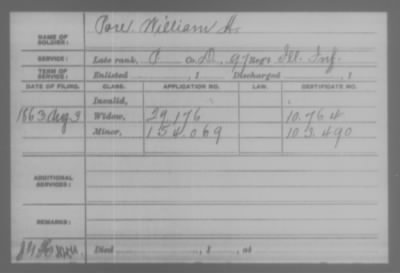 NAME OF SOLDIER: William H.
SERVICE: Late rank, P Co. D, 97 Reg't Ill. Inf.
TERM OF SERVICE: Enlisted , 1 Discharged , 1
DATE OF FILING. CLASS. APPLICATION NO. LAW. CERTIFICATE NO.
Invalid,
1863 Aug 3 Widow, 29,176 10.764
Minor, 154.069 103.490
ADDITIONAL SERVICES:
REMARKS:
Died , 1 , at